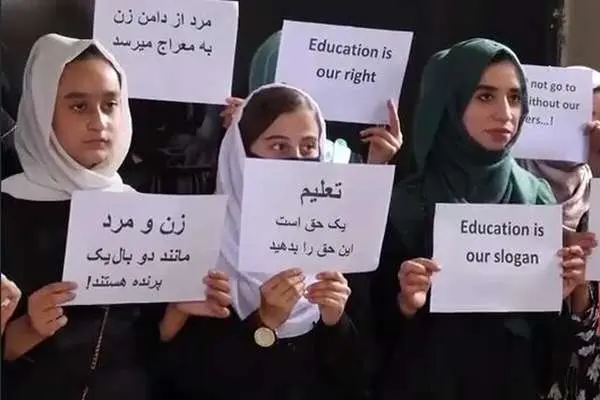 مرد از دامن زن
به معراج میرسد
Education is
our right
not go to
without our
...!
زن و مرد
مانند دو بال یک
پرنده هستند!
تعلیم
یک حق است
این حق را بدهید
Education is
our slogan